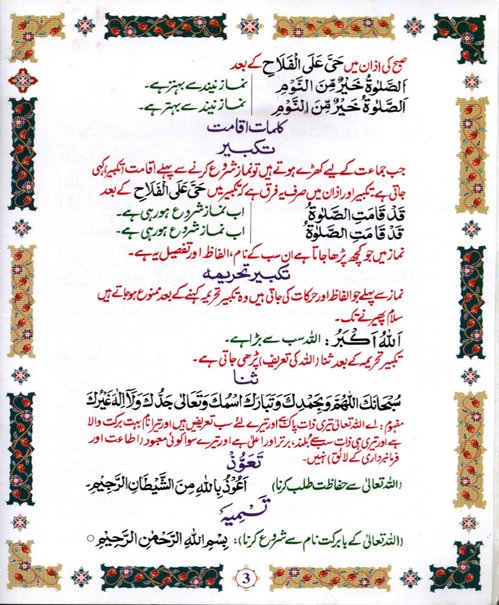 صبح کی اذان میں حَیَّ عَلَی الْفَلَاحِ کے بعد
اَلصَّلٰوۃُ خَیْرٌ مِّنَ النَّوْمِ نماز نیند سے بہتر ہے۔
اَلصَّلٰوۃُ خَیْرٌ مِّنَ النَّوْمِ نماز نیند سے بہتر ہے۔
کلمات اقامت
تکبیر
جب جماعت کے لیے کھڑے ہوتے ہیں تو نماز شروع کرنے سے پہلے اقامت (تکبیر) کہی
جاتی ہے۔ تکبیر اور اذان میں صرف یہ فرق ہے کہ تکبیر میں حَیَّ عَلَی الْفَلَاحِ کے بعد
قَدْ قَامَتِ الصَّلٰوۃُ اب نماز شروع ہو رہی ہے۔
قَدْ قَامَتِ الصَّلٰوۃُ اب نماز شروع ہو رہی ہے۔
نماز میں جو کچھ پڑھا جاتا ہے ان سب کے نام، الفاظ اور تفصیل یہ ہے۔
تکبیر تحریمہ
نماز سے پہلے جو الفاظ اور حرکات کی جاتی ہیں وہ تکبیر تحریمہ کہنے کے بعد ممنوع ہو جاتے ہیں
سلام پھیرنے تک۔
اَللّٰہُ اَکْبَرُ: اللہ سب سے بڑا ہے۔
تکبیر تحریمہ کے بعد ثنا (اللہ کی تعریف) پڑھی جاتی ہے۔
ثنا
سُبْحَانَكَ اللّٰهُمَّ وَبِحَمْدِكَ وَتَبَارَكَ اسْمُكَ وَتَعَالٰی جَدُّكَ وَلَآ اِلٰهَ غَیْرُكَ
مفہوم: اے اللہ تیری ذات پاک ہے اور تیرے لئے سب تعریفیں ہیں اور تیرا نام بہت برکت والا
ہے اور تیری ہی ذات سب سے بلند، برتر اور اعلیٰ ہے اور تیرے سوا کوئی معبود (اطاعت اور
فرمانبرداری کے لائق) نہیں۔
تَعَوُّذْ
(اللہ تعالیٰ سے حفاظت طلب کرنا) اَعُوْذُ بِاللّٰهِ مِنَ الشَّیْطَانِ الرَّجِیْمِ۔
تَسْمِیَہ
(اللہ تعالیٰ کے بابرکت نام سے شروع کرنا): بِسْمِ اللّٰهِ الرَّحْمٰنِ الرَّحِیْمِ ○
3